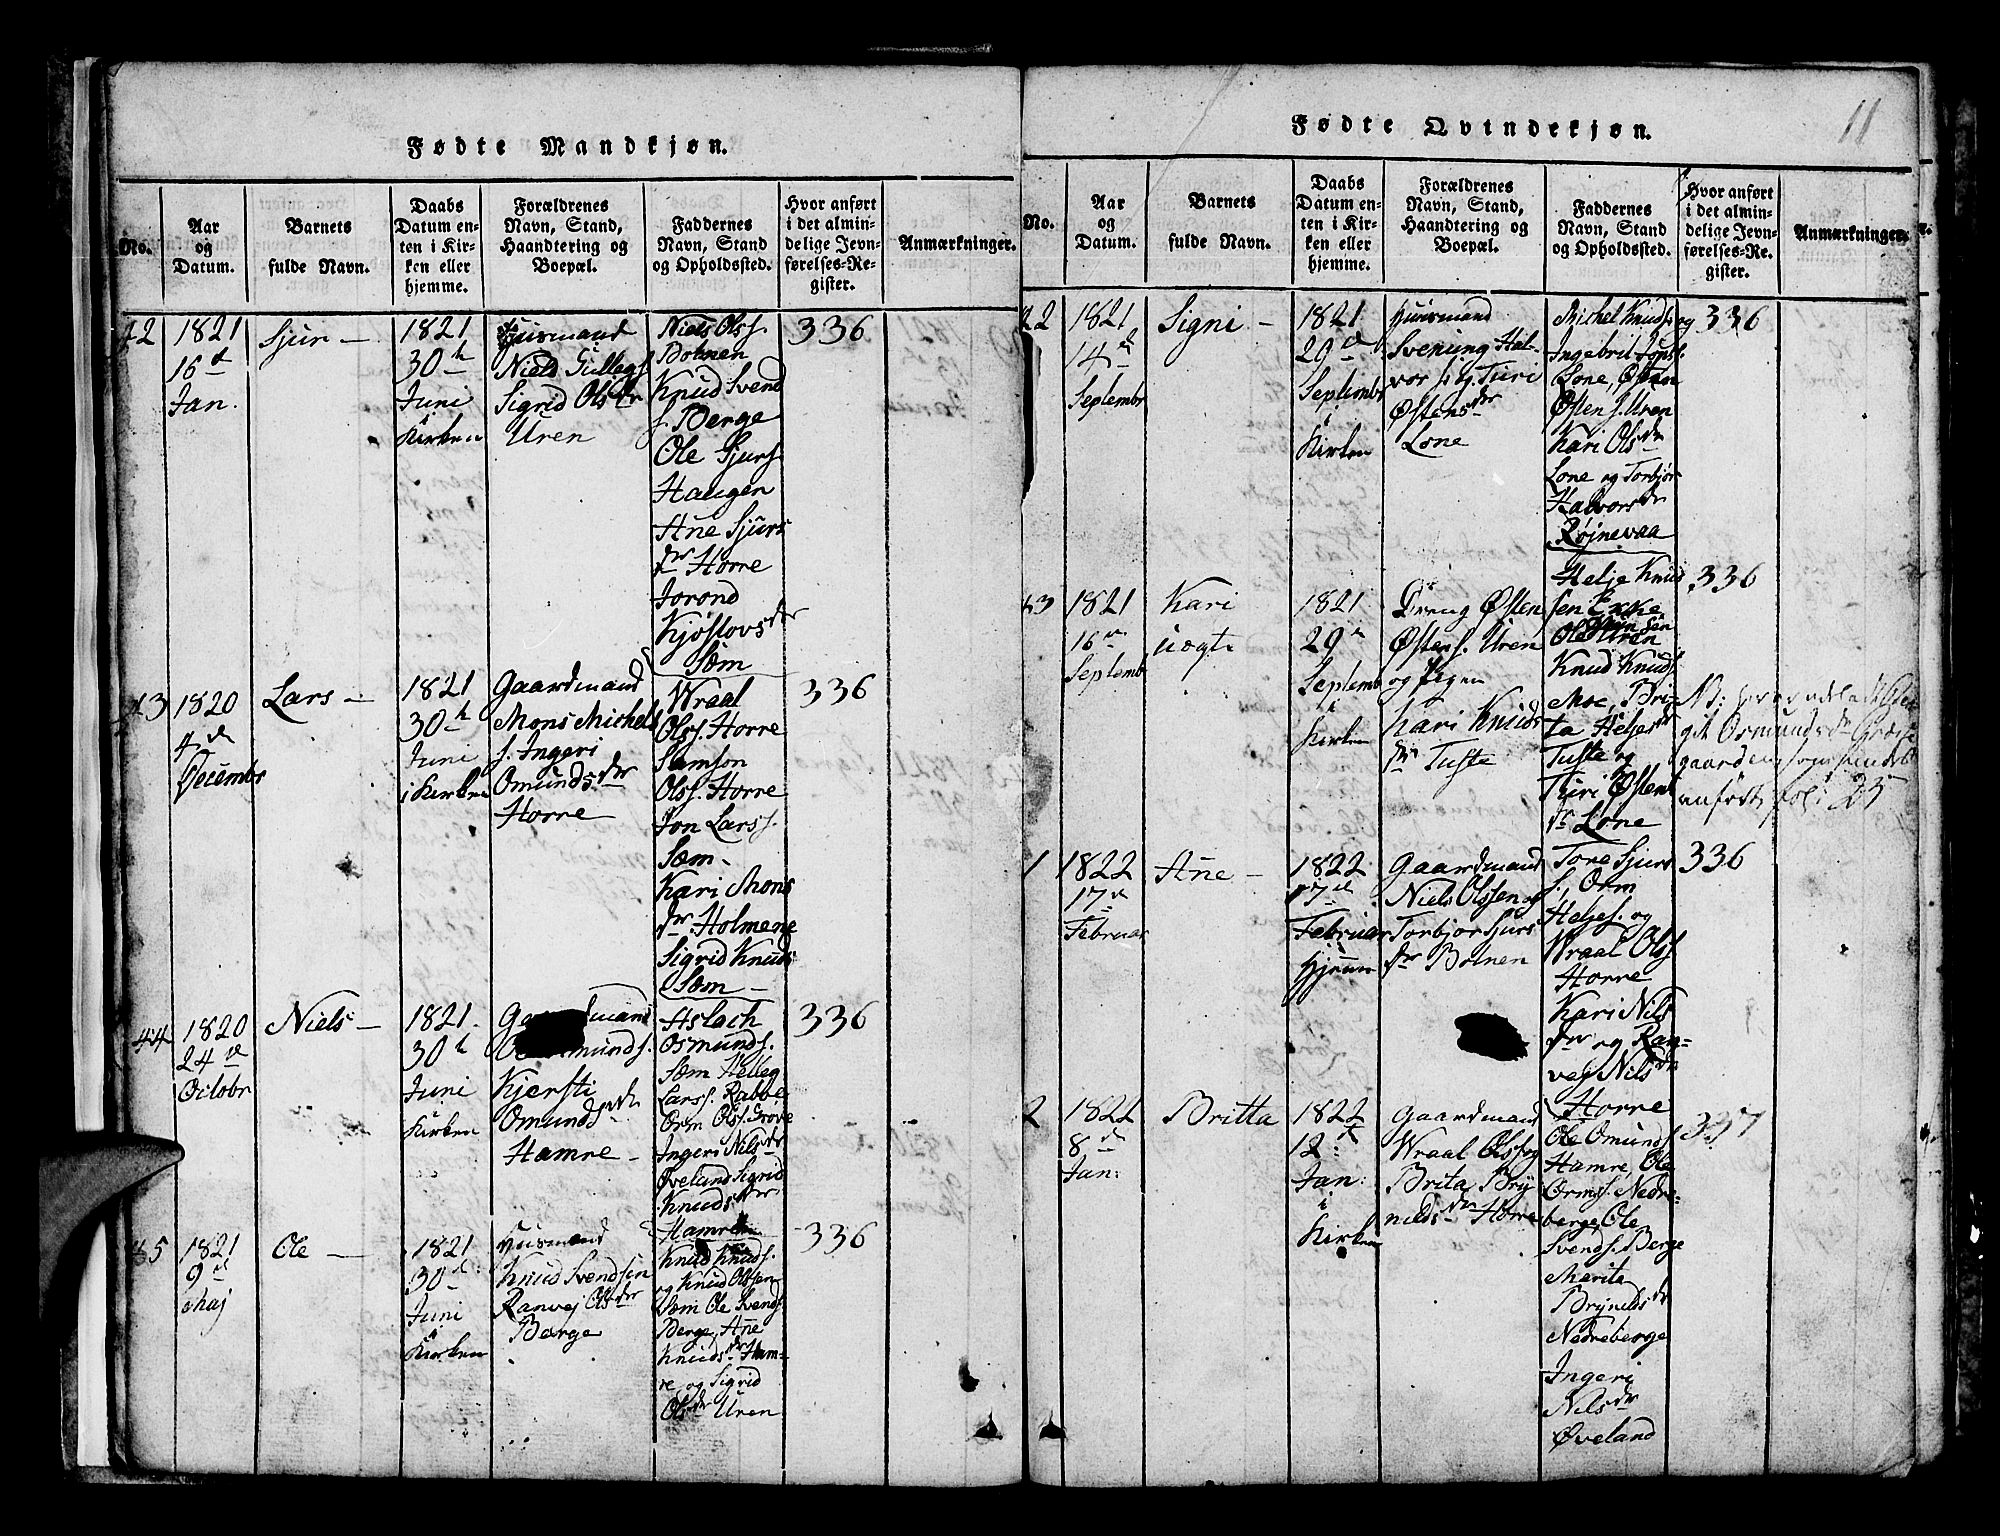 Fødte Mandkjøn.
No.
Aar
og
Datum.
Barnets
fulde Navn.
Daabs
Datum en-
ten i Kir-
ken eller
hjemme.
Forældrenes
Navn, Stand,
Haandtering og
Boepæl.
Faddernes
Navn, Stand
og Opholdssted.
Hvor anført
i det almin-
delige Jevn-
førelses-Re-
gister.
Anmærkninger.
42
1821
16d
Jan.
Sjur –
1821
30th
Juni
Kirken
Huusmand
Niels Gullegs.
Sigrid Olsdr
Uren
Niels Olss.
Botnen
Knud Svend
s. Berge
Ole Sjurs.
Haugen
Ane Sjurs
dr Horre
Jorond
Kjøstovsdr
Søm
336
43
1820
4de
Decembr
Lars –
1821
30th
Juni
i Kirken
Gaardmand
Mons Michels
s. Ingeri
Omundsdr
Horre
Wraal
Olss. Horre
Samson
Olss. Horre
Jon Larss.
Søm –
Kari Mons
dr. Holmene
Sigrid Knuds
Søm –
336
44
1820
24de
Octobr
Niels –
1821.
30th
Juni
Kirken
Kjersti
Omundsdr
Hamre –
Aslach
Osmunds.
Søm Helleg
Larss. Rabbe
Orm Olss. Grove
Ingeri Nilsdr
Øveland Sigrid
Knudsdr
Hamre
336
1821
9de
Maj
Ole –
1821
30d
Juni
Kirken
Huusmand
Knud Svendsen
Ranvej Olsdr
Berge
Knud Knuds.
og Knud Olssen
Søm Ole Svends.
Berge, Ane
Knudsdr Ham-
re og Sigrid
Olsdr Uren
336
Fødte Qvindekjøn.
11
No.
Aar
og
Datum.
Barnets
fulde Navn.
Daabs
Datum en-
ten i Kir-
ken eller
hjemme.
Forældrenes
Navn, Stand,
Haandtering og
Boepæl.
Faddernes
Navn, Stand
og Opholdssted.
Hvor anført
i det almin-
delige Jevn-
førelses-Re-
gister.
Anmærkninger.
22
1821
14de
Septembr
Signi –
1821
29de
Septembr
i
Kirken
Huusmand
Svenung Hal-
vors. og Turi
Østensdr
Lone
Michel Knuds. og
Ingebrit Jons.
Lone, Østen
Østens. Uren
Kari Olsdr
Lone og Torbjør
Halvorsdr
Røjnevaa
336
23
1821
16de
Septembr
Kari
uægte
1821
29de
Septemb
i
Kirken
Dreng Østen
Østens. Uren
og Pigen
Kari Knuds
dr Tufte
Helje Knud
sen
Ole Uren
Knud Knuds.
Moe, Bri-
ta Heljesdr
Tufte og
Turi Østens
dr Lone
336
git Osmundsdr
gaarden som findes
anført fol: 25
1
1822
17de
Februar
Ane –
1822
17de
Februar
Hjemme
Gaardmand
Niels Olssen og
Torbjor Sjurs
dr Botnen
Tore Sjurs
s., Orm
Heljes. og
Wraal Olss.
Horre
Kari Nils
dr og Ran-
vej Nilsdr
Horre
336
2
1822
8de
Jan:
Britta
1822
12:de
Jan:
i
Kirken
Gaardmand
Wraal Olss og
Brita Bry
nildsdr Horre
Ole Omunds.
Hamre, Ole
Ormss. Nedre-
berge, Ole
Svends. Berge
Merita
Brynildsdr
Nedreberge
Ingeri
Nilsdr
Øveland
337